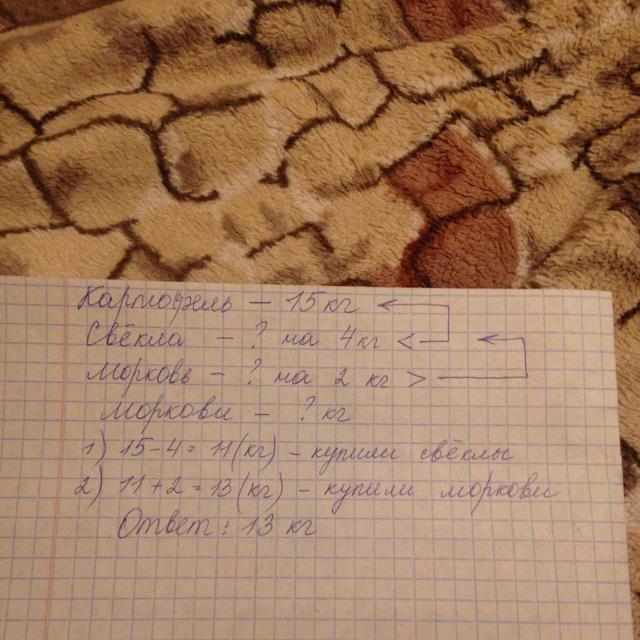 Картофель – 15 кг
Свёкла – ? на 4 кг <
Морковь – ? на 2 кг >
Моркови – ? кг
1) 15-4=11(кг) – купили свёклы
2) 11+2=13(кг) – купили моркови
Ответ: 13 кг